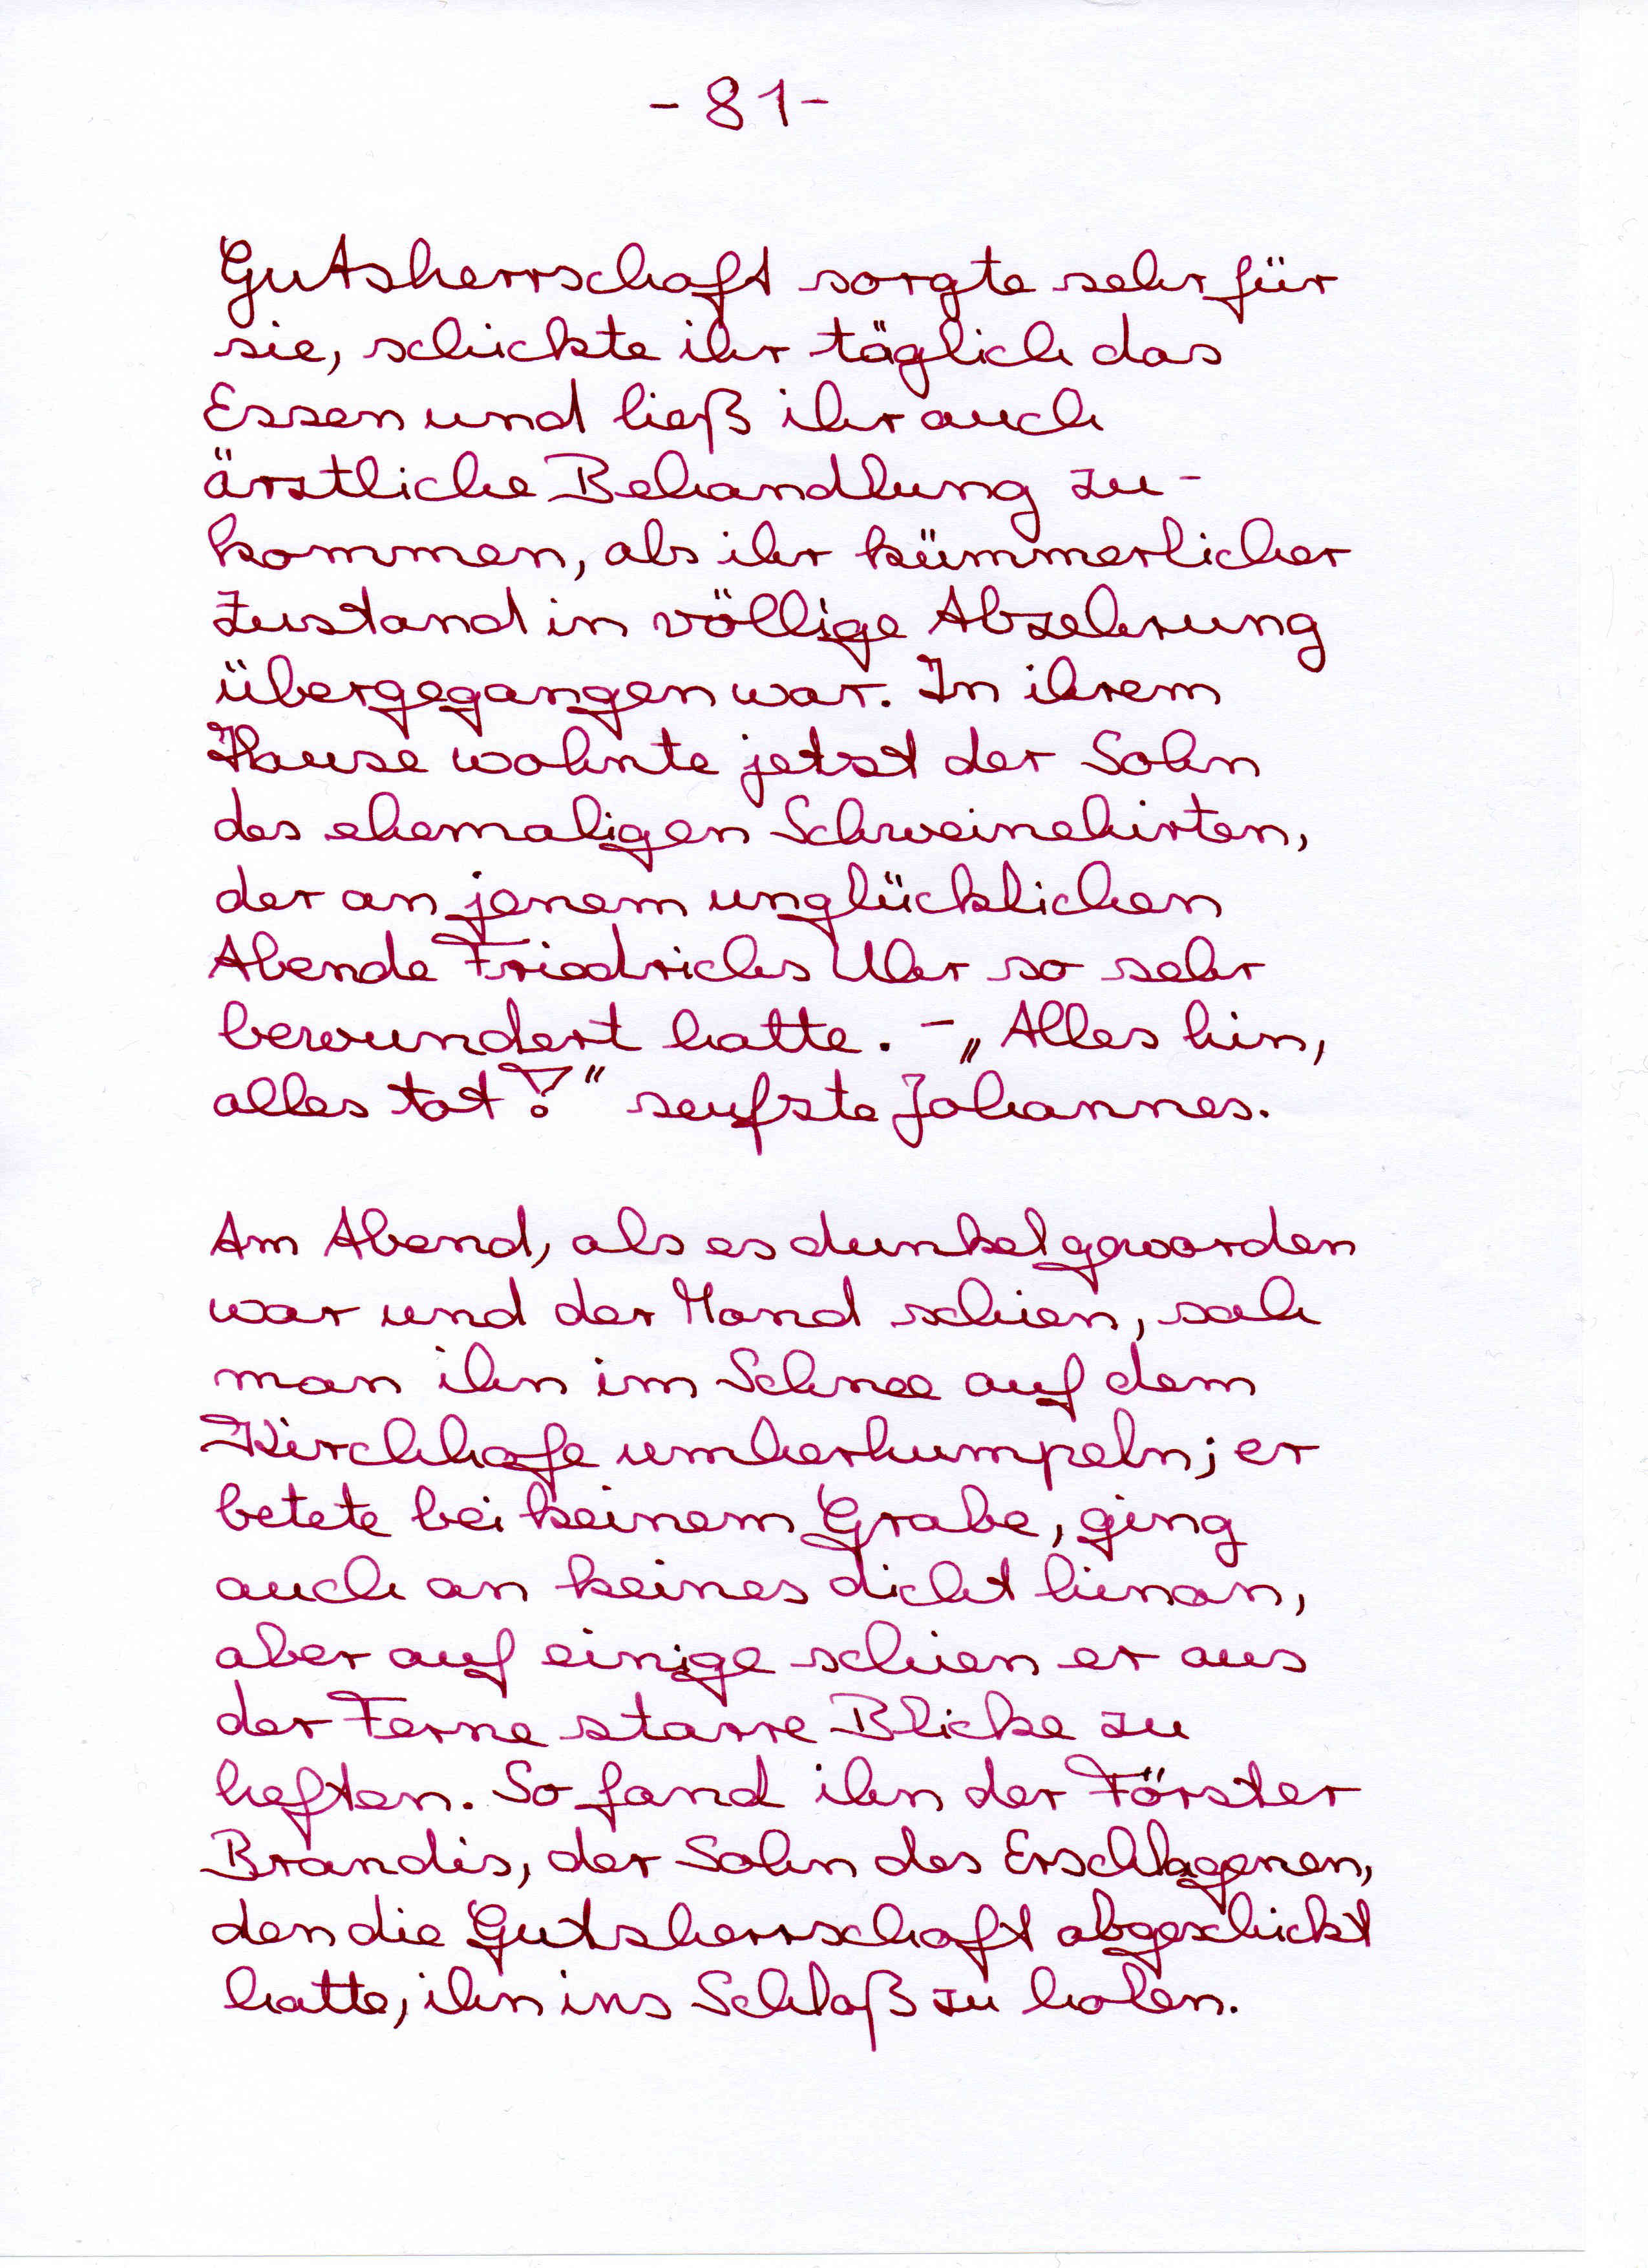 - 81 -
Gutsherrschaft sorgte sehr für
sie, schickte ihr täglich das
Essen und ließ ihr auch
ärztliche Behandlung zu-
kommen, als ihr kümmerlicher
Zustand in völlige Abzehrung
übergegangen war. In ihrem
Hause wohnte jetzt der Sohn
des ehemaligen Schweinehirten,
der an jenem unglücklichen
Abende Friedrichs Uhr so sehr
bewundert hatte. - „Alles hin,
alles tot!" seufzte Johannes.
Am Abend, als es dunkel geworden
war und der Mond schien, sah
man ihn im Schnee auf dem
Kirchhofe umherhumpeln; er
betete bei keinem Grabe, ging
auch an keines dicht hinan,
aber auf einige schien er aus
der Ferne starre Blicke zu
heften. So fand ihn der Förster
Brandis, der Sohn des Erschlagenen,
den die Gutsherrschaft abgeschickt
hatte, ihn ins Schloß zu holen.